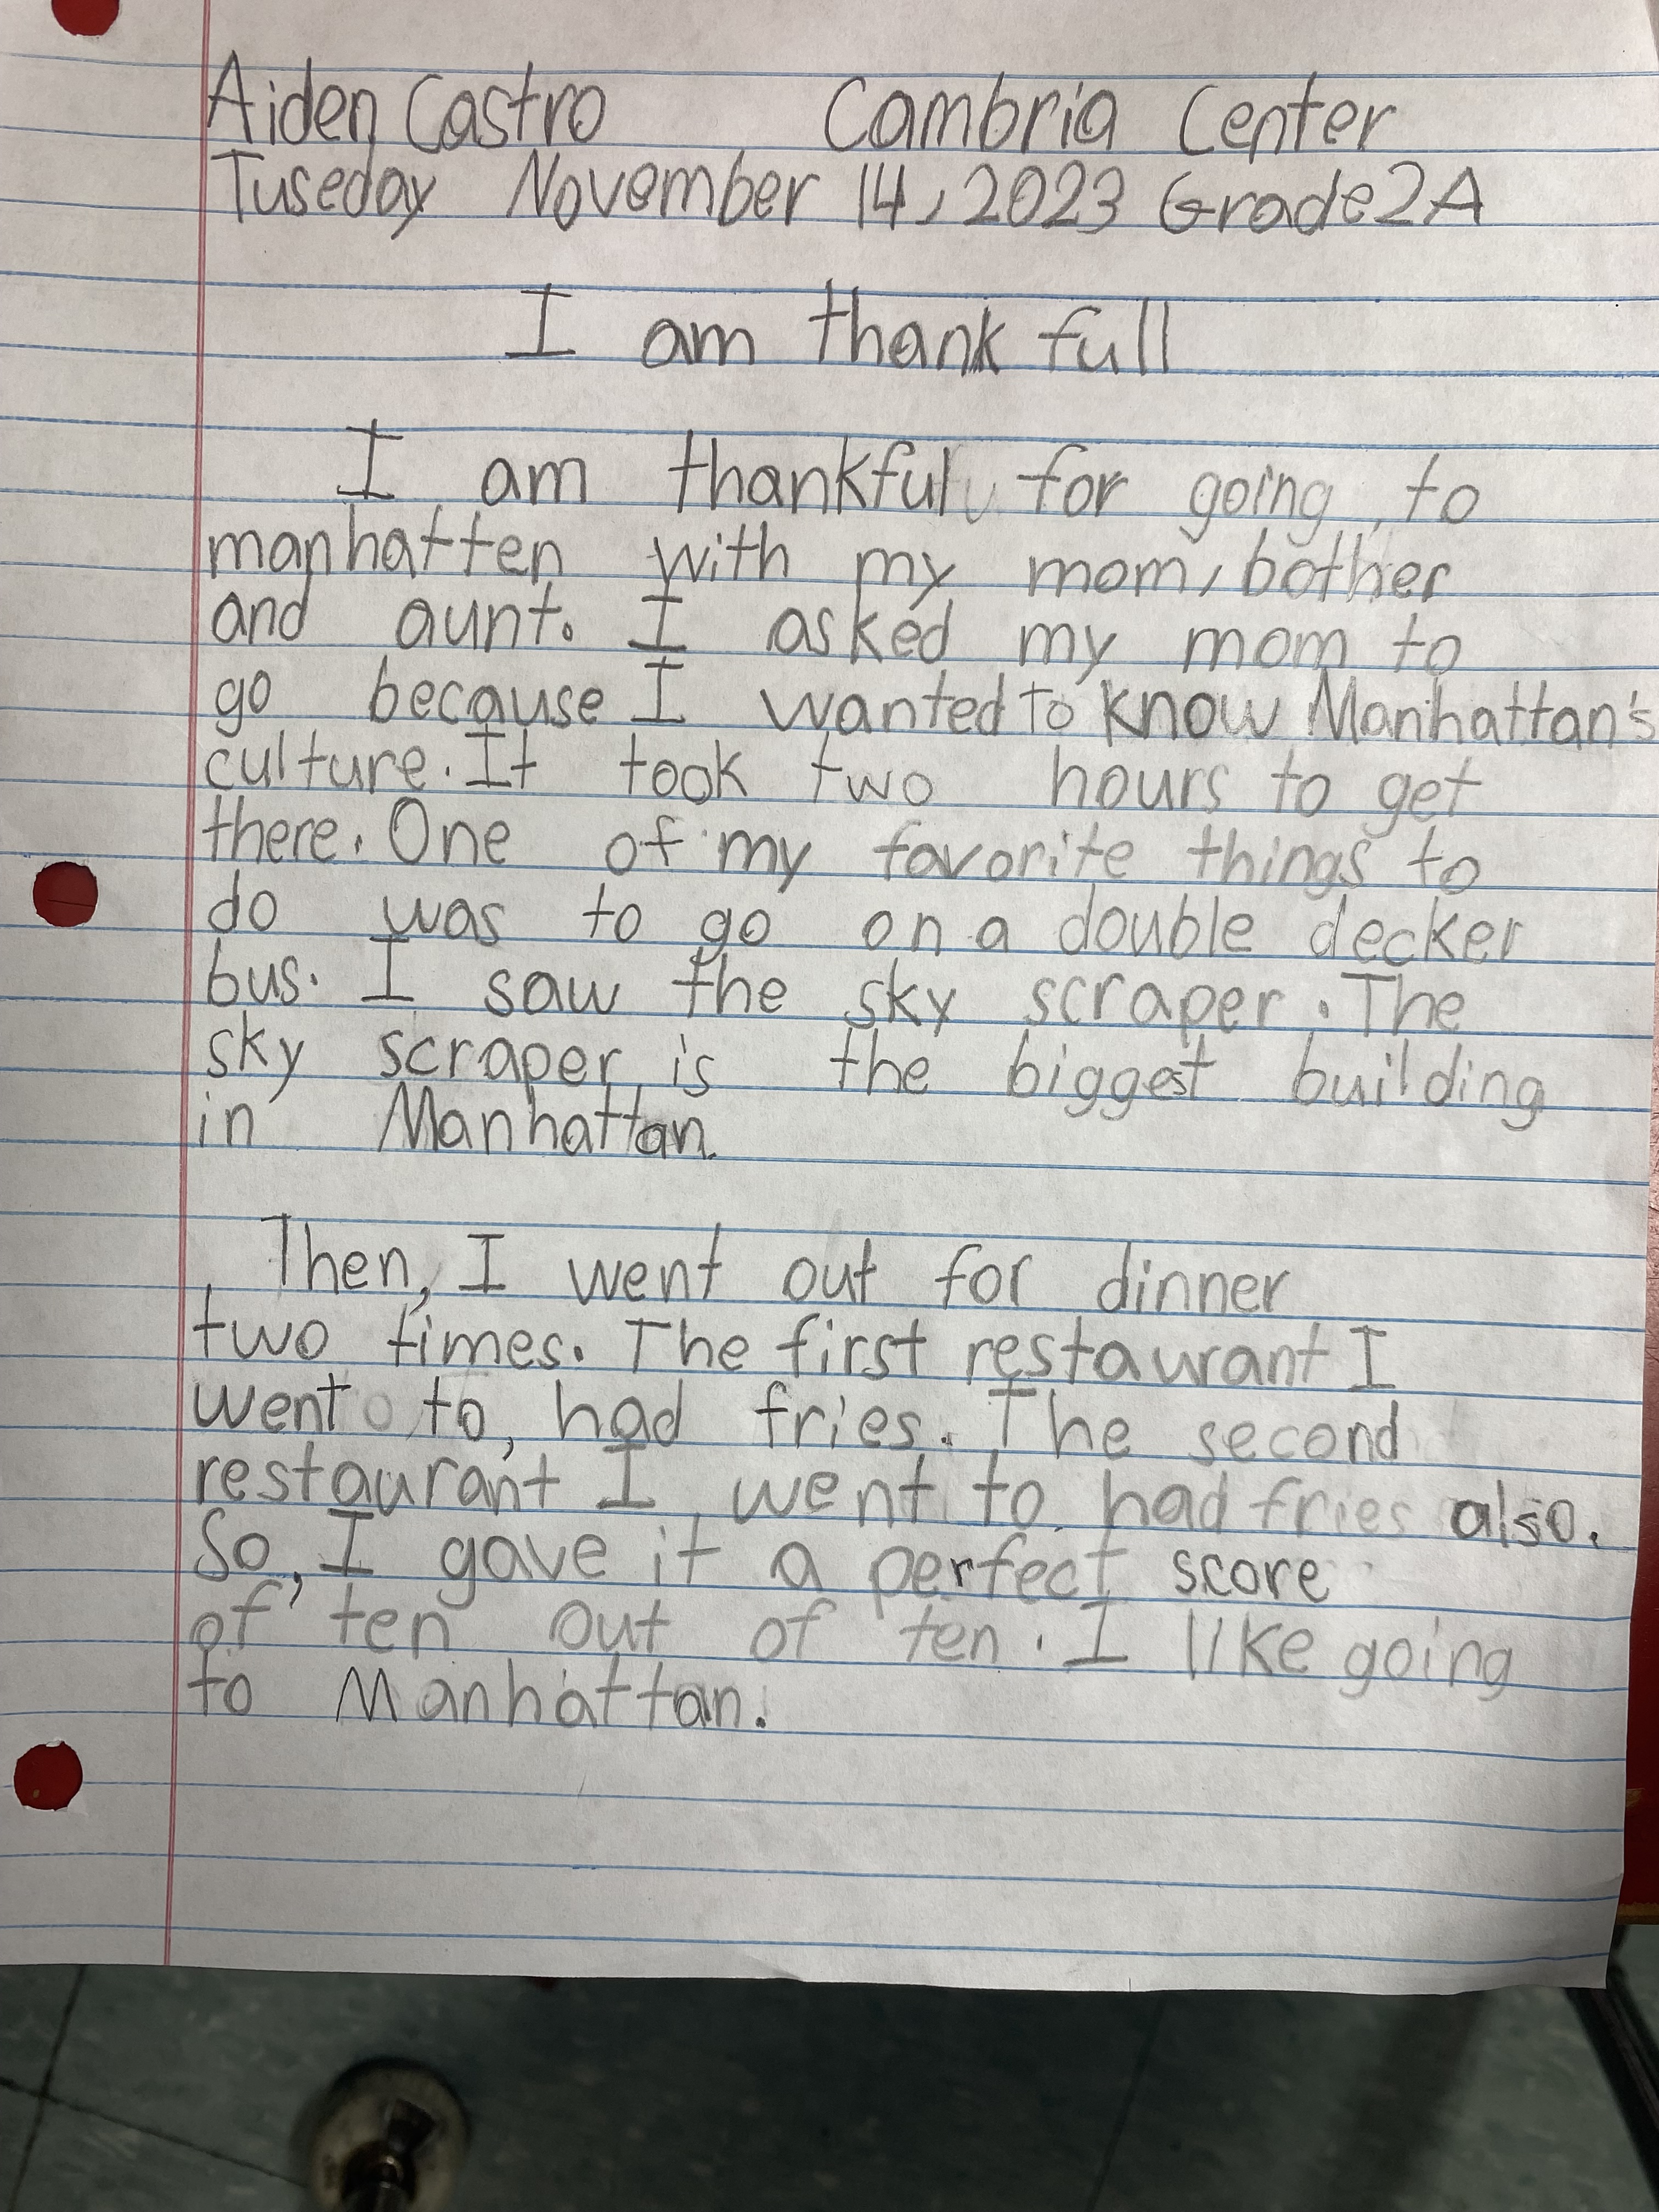 Aiden Castro Cambria Center
Tuseday November 14, 2023 Grade 2A
I am thank full
I am thankful for going to
manhatten with my mom, bother
and aunt. I asked my mom to
go because I wanted to know Manhattan's
culture. It took two hours to get
there. One of my favorite things to
do was to go on a double decker
bus. I saw the sky scraper. The
sky scraper is the biggest building
in Manhattan.
Then, I went out for dinner
two times. The first restaurant I
went to, had fries. The second
restaurant I went to had fries also.
So, I gave it a perfect score
of ten out of ten. I like going
to Manhattan.